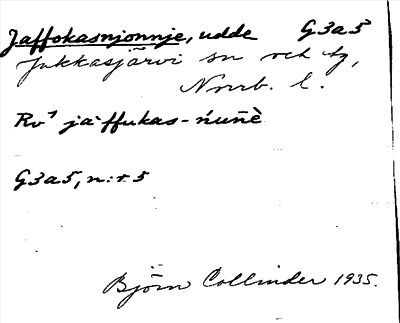 Jaffokasnjonnje, udde G3a5
Jukkasjärvi sn och tg,
Norrb. l.
Rv⁷ ja·ffukas-ńuńè
G3a5, n:r 5
Björn Collinder 1935.